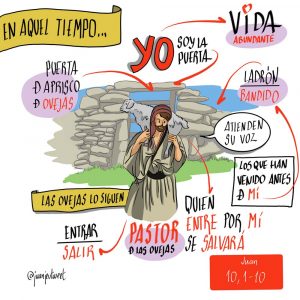 EN AQUEL TIEMPO...
VIDA
ABUNDANTE
YO
SOY LA
PUERTA..
PUERTA
D APRISCO
D OVEJAS
LADRÓN
BANDIDO
ATIENDEN
SU VOZ
LOS QUE HAN
VENIDO ANTES
D MÍ
LAS OVEJAS LO SIGUEN
ENTRAR
SALIR
PASTOR
D LAS OVEJAS
QUIEN
ENTRE POR MÍ
SE SALVARÁ
Juan
10, 1-10